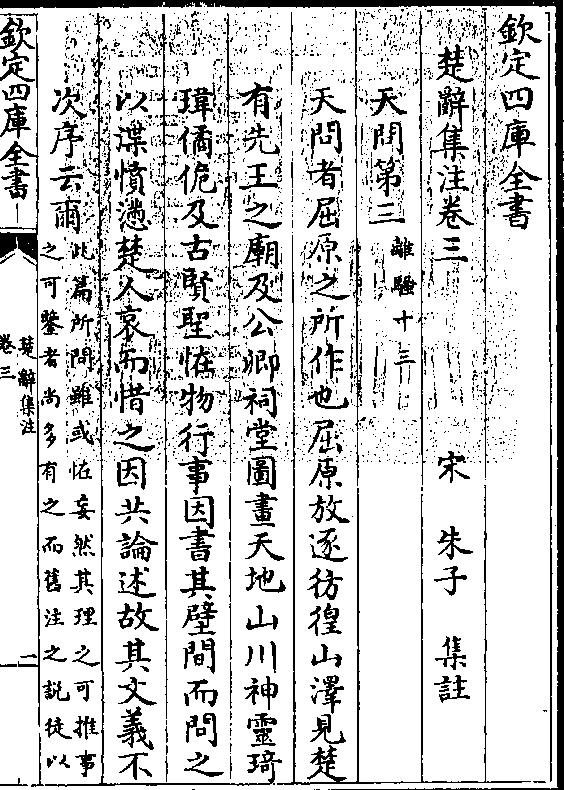 欽定四庫全書
楚辭集注卷三
宋 朱子 集註
天問第三 離騷十三
天問者屈原之所作也屈原放逐彷徨山澤見楚
有先王之廟及公卿祠堂圖畫天地山川神靈琦
瑋僪佹及古賢聖怪物行事因書其壁間而問之
以渫憤懣楚人哀而惜之因共論述故其文義不
次序云爾
此篇所問雖或怪妄然其理之可推事
之可鑒者尚多有之而舊注之說徒以
欽定四庫全書
楚辭集注
卷三
一